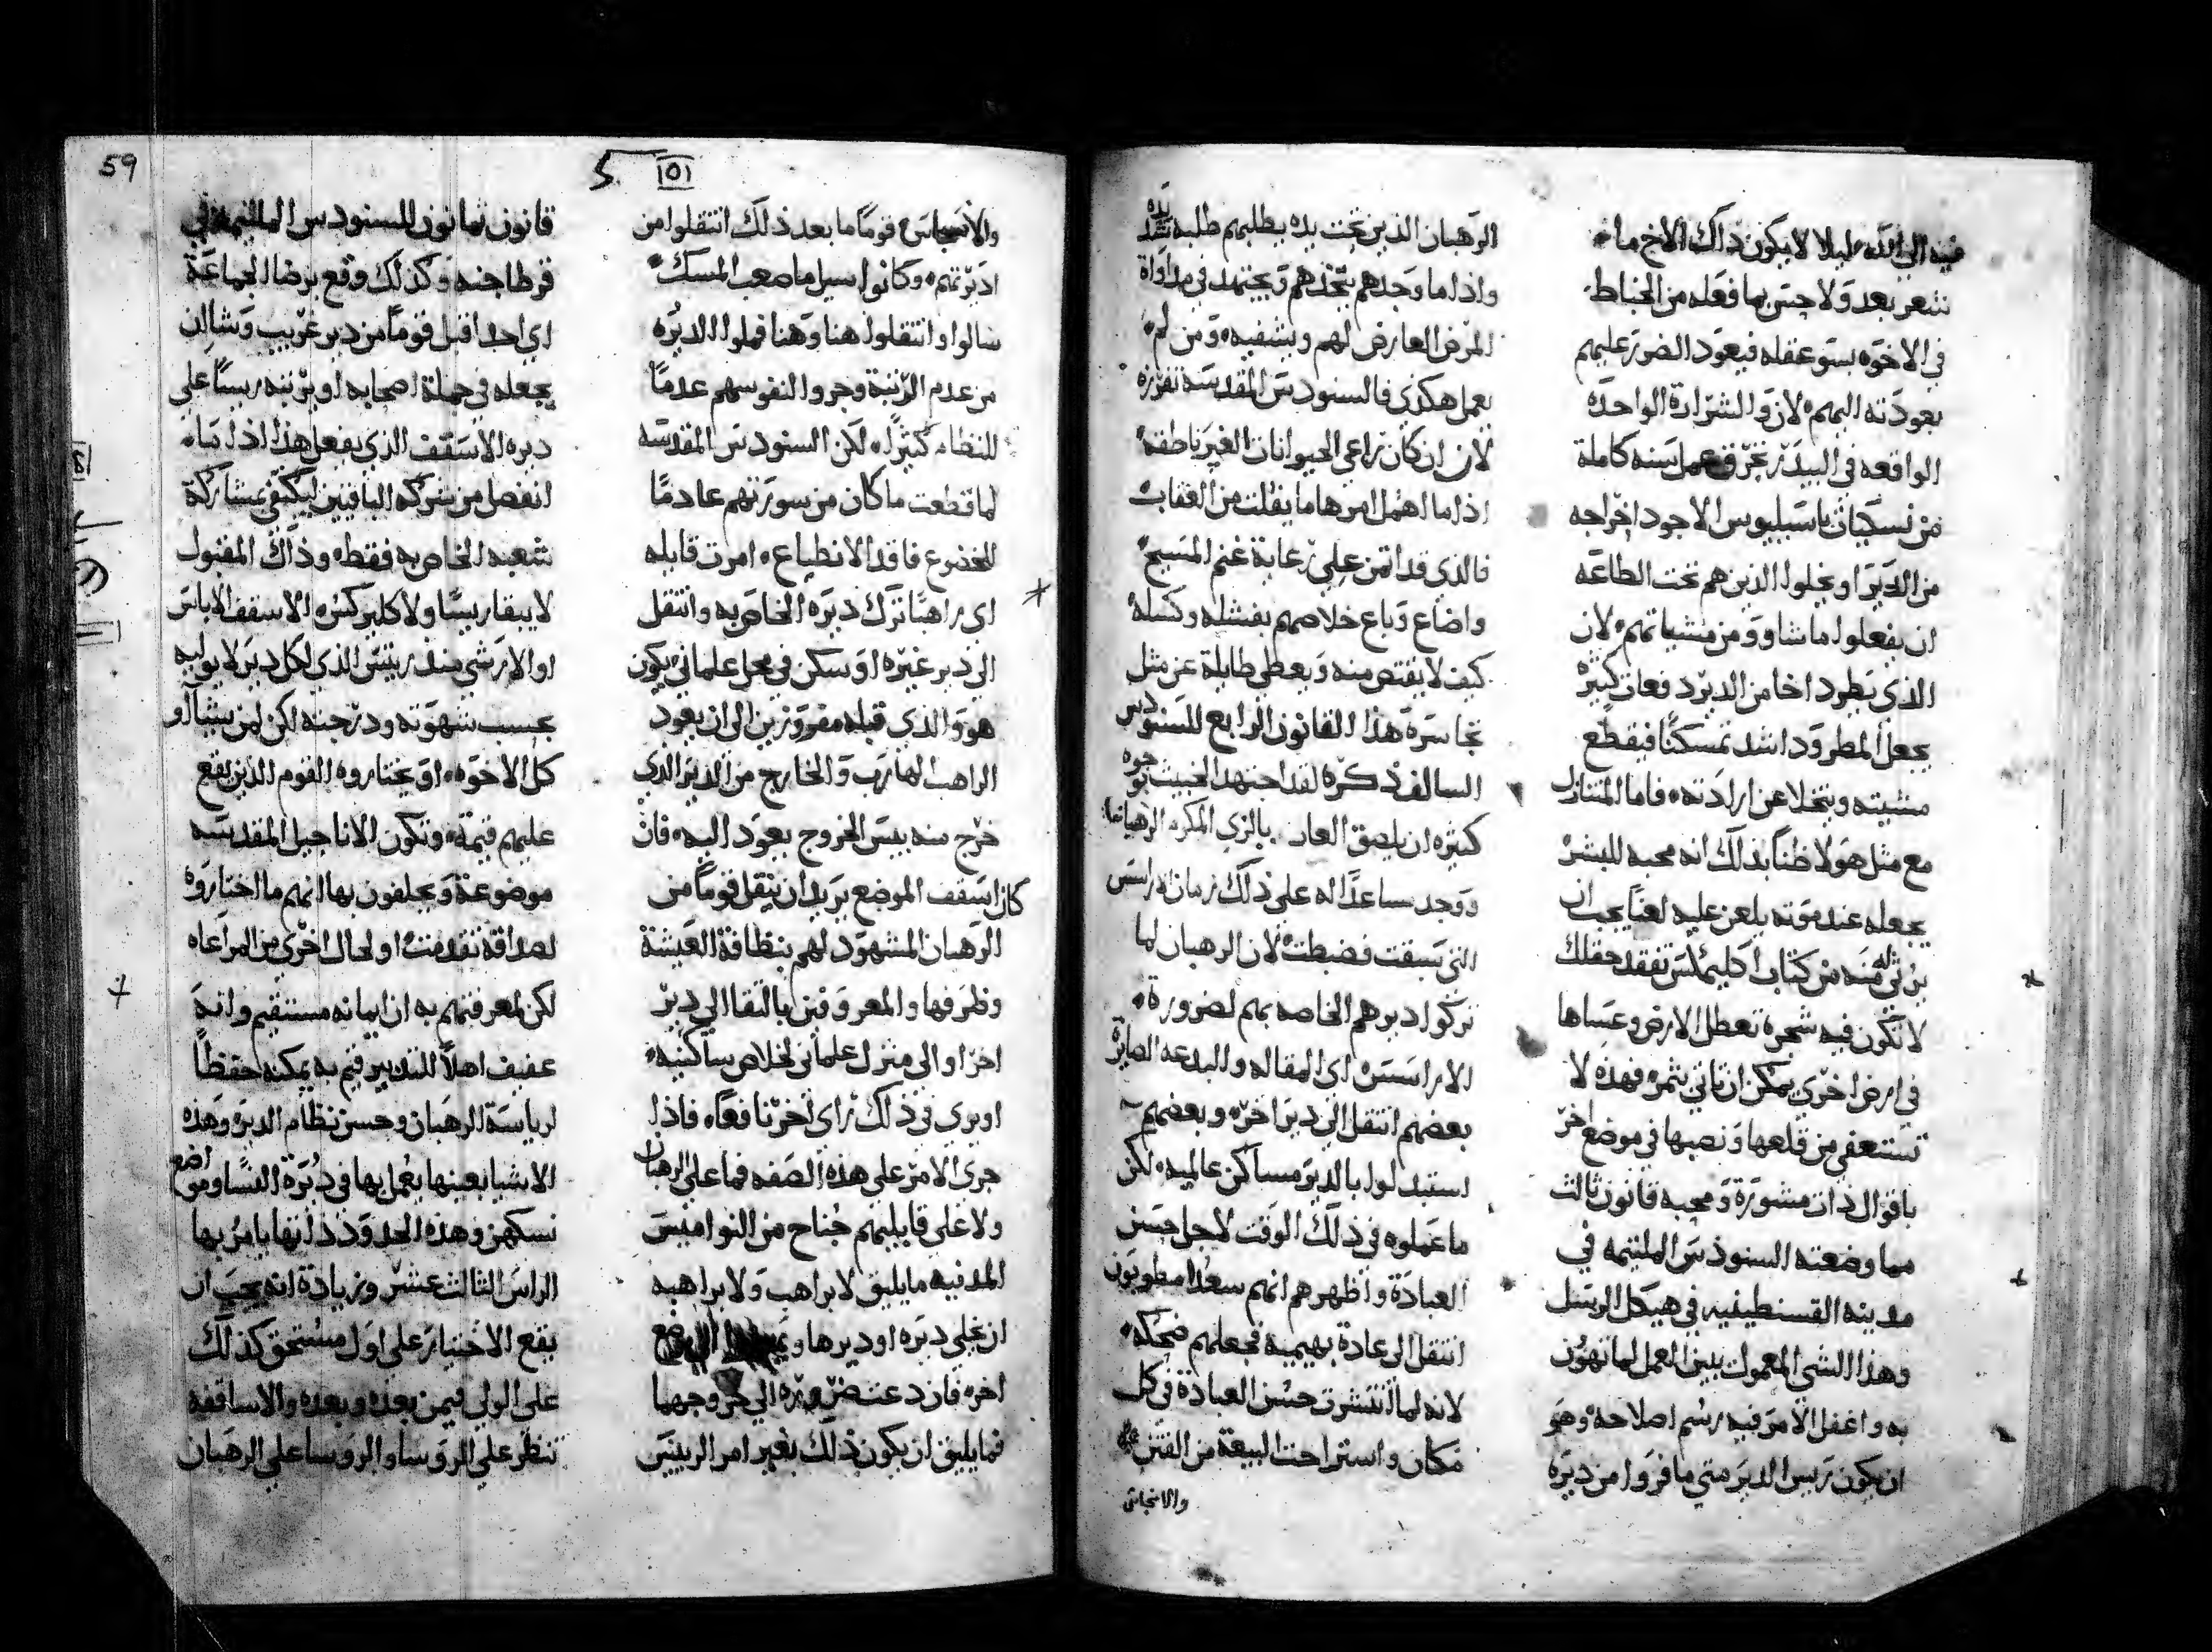 فيه الى الله ليلا لا يكون ذاك الاخ ما
شعر بعد ولا حس بما فعله من الخباط
في الاخوه بسو عقله فيعود الضرر عليهم
بعودته اليهم لان والشرارة الواحده
الواقعه في البيدر تحرق عمل سنه كاملة
من نسكيات باسيليوس الاجود اخراجه
من الدير او يخلوا الذين هم تحت الطاعه
ان يفعلوا ما شاوو من مشياتهم لان
الذي يطرد اخا من الدير دفعات كثيره
يجعل المطرود اشد تمسكنا فيقطع
مشيته ويتخلا عن ارادته فاما المتنازل
مع مثل هولا ظنا بذلك انه محبه للبشر
يجعله عند موته يلعن عليه لعنا يجب ان
يرثى له منه من كتاب اكليمكس تفقد حقلك
لا تكون فيه شجرة تعطل الارض وعساها
في ارض اخرى يمكن ان تاتي بثمره فهذه لا
تستعفي من قلعها ونصبها في موضع اخر
باقوال ذات مشورة ومحبه قانون ثالث
مما وضعته السنودس الملتيمه في
مدينه القسنطينيه في هيكل الرسل
وهذا الشي المعمول بلين العمل لما تهون
به واغفل الامر فيه رسم اصلاحه وهو
ان يكون ريس الدير متي ما فروا من ديره
الرهبان الذين تحت يده يطلبهم طلبه شديده
واذا ما وجدهم يتخذهم ويجتهد في مداواة
المرض العارض لهم ويشفيه ومن لم
يعمل هكذى فالسنودس المقدسه تفرزه
لان ان كان راعي الحيوانات الغير ناطقه
اذا ما اهمل امرها ما يفلت من العقاب
فالذي قد اتمن على رعاية غنم المسيح
واضاع وباع خلاصهم بفشله وكسله
كيف لا يقتص منه ويعطي طايلة عن مثل
تجاسره هذا القانون الرابع للسنودس
السالف ذكره لقد اجتهد الخبيث بوجوه
كثيره ان يلصق العار بالزي المكرم الرهباني
ووجد مساعدا له على ذلك زمان اراسس
التي سبقت فضبطت لان الرهبان لما
تركوا اديرهم الخاصه بهم لضرورة
الاراسس اى المقاله والبدعه الصايرة
بعضهم انتقل الى دير اخر وبعضهم
استبدلوا بالدير مساكن عالميه لكن
ما عملوه في ذلك الوقت لاجل حسن
العبادة واظهرهم انهم سعدا مطوبون
انتقل الى عادة بهيمية فجعلهم ضحكه
لانه لما انتشرت حسن العبادة في كل
مكان واستراحت البيعة من الفتن
والانجاس
59
5 101
والانجاس قوما ما بعد ذلك انتقلوا من
اديرتهم وكانوا سيل ما صعب المسك
سالوا وانتقلوا هنا وهنا فملوا الديره
من عدم الرتبة وجروا لنفوسهم عدما
للنظام كثيرا لكن السنودس المقدسه
لما قطعت ما كان من سورتهم عادما
للخضوع فاقد الانطياع امرت قايله
اى راهبا ترك ديره الخاص به وانتقل
الى دير غيره او سكن في محل علماني يكون
هو والذي قبله مفروزين الى ان يعود
الراهب الهارب والخارج من الدير الذي
خرج منه بيس الخروج يعود اليه فان
كان اسقف الموضع يريد ان ينقل قوما من
الرهبان المشهود لهم بنظافة العيشة
وظرفها والمعروفين بالتقا الى دير
اخر او الى منزل علماني لخلاص ساكنيه
او يرى في ذلك راى اخر نافعا فاذا
جرى الامر على هذه الصفه فما على الرهبان
ولا على قابليهم جناح من النواميس
المدنيه ما يليق لا براهب ولا براهبه
ان يخلي ديره او ديرها ويمضي الى موضع
اخر فان دعت ضروره الى خروجهما
فما يليق ان يكون ذلك بغير امر الرييس
قانون ثمانون للسنودس الملتيمه في
قرطاجنه وكذلك وقع برضا الجماعة
اى احدا قبل قوما من دير غريب وشا ان
يجعله في جملة اصحابه او يرتبه ريسا على
ديره الاسقف الذي يفعل هذا اذا ما
انفصل من شركه الباقيين ليكتفي بمشاركة
شعبه الخاص به فقط وذاك المقبول
لا يبقا ريسا ولا كليركس الاسقف الاباس
او الارشي مندريتس الذي لكل دير لا يوليه
بحسب شهوته ودرجته لكن لمن يشاوو
كل الاخوه او يختاروه القوم الذين يقع
عليهم قيمة وتكون الاناجيل المقدسه
موضوعة ويحلفون بها انهم ما اختاروه
لصداقة تقدمت او لحال اخرى من المراعاه
لكن لمعرفتهم به ان ايمانه مستقيم وانه
عفيف اهلا للتدبير قيم به يمكنه حفظا
لرياسة الرهبان وحسن نظام الديره وهذه
الاشيا بعينها يعمل بها في ديرة النسا ومواضع
نسكهن وهذه الحدود ذاتها يامر بها
الراس الثالث عشر وزيادة انه يجب ان
يقع الاختيار على اول مستحق كذلك
على الولي فيمن بعده وبعده والاساقفه
تنظر على الروسا والروسا على الرهبان